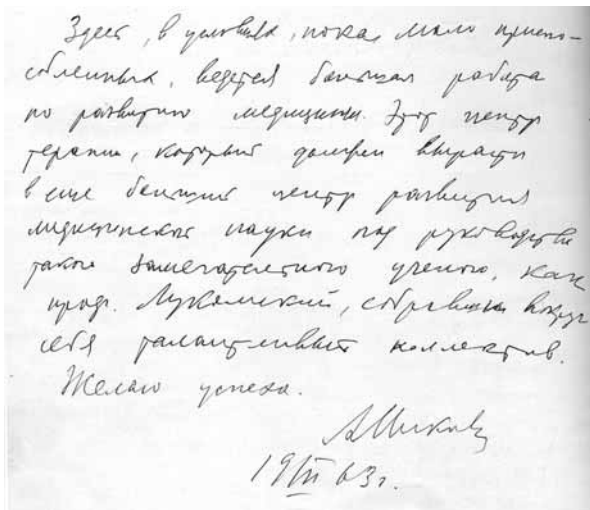 Здесь, в условиях, пока, мало приспо-
собленных, ведется большая работа
по развитию медицины. Этот центр
терапии, который должен вырасти
в еще больший центр развития
медицинской науки под руководством
такого замечательного ученого, как
проф. Лукомский, собравший вокруг
себя талантливый коллектив.
Желаю успеха.
19/III 63г.